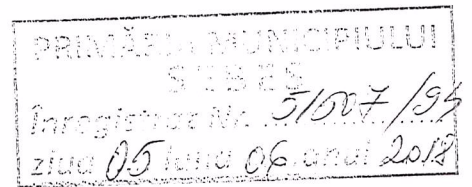 PRIMĂRIA MUNICIPIULUI
SEBEȘ
Înregistrat Nr. 5/507/94
ziua 05 luna 06 anul 2018